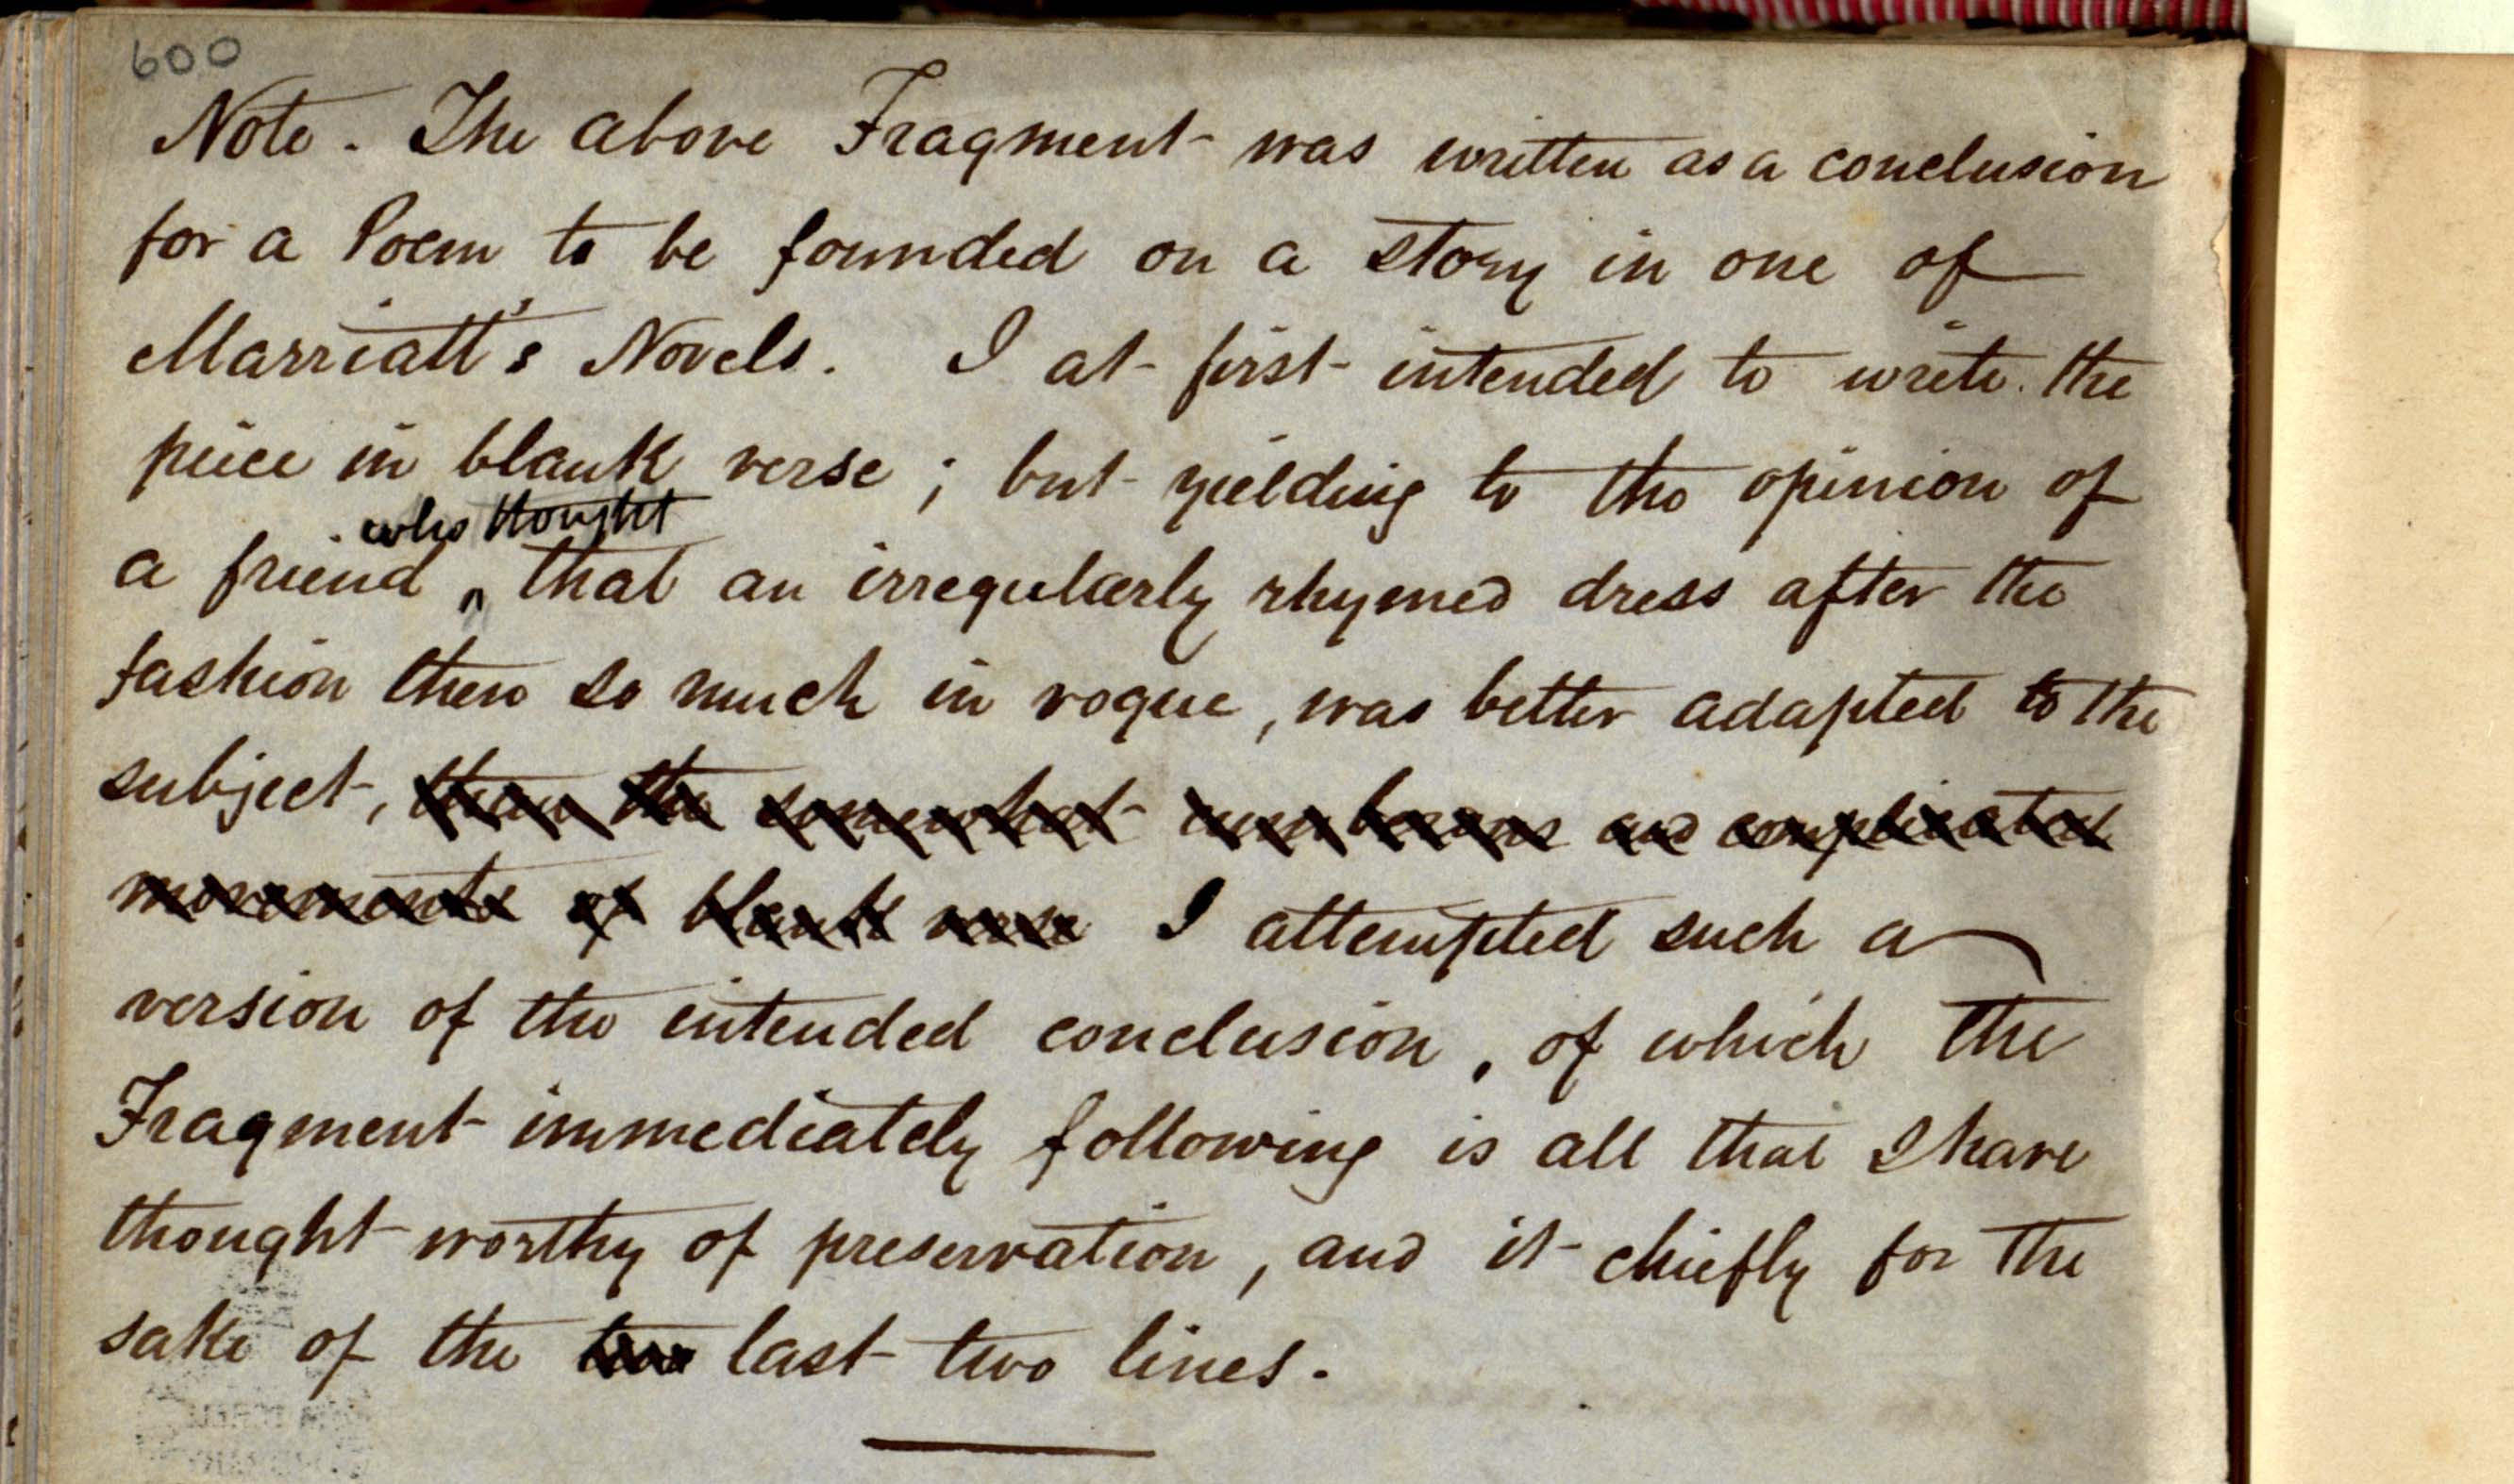 600
Note. The above Fragment was written as a conclusion
for a Poem to be founded on a story in one of
Marriatt's Novels. I at first intended to write the
peice in blank verse; but yielding to the opinion of
who thought
a friend ^ that an irregularly rhymed dress after the
fashion then so much in vogue, was better adapted to the
subject, than the somewhat cumbrous and complicated
movements of blank verse I attempted such a
version of the intended conclusion, of which the
Fragment immediately following is all that I have
thought worthy of preservation, and it chiefly for the
sake of the two last two lines.